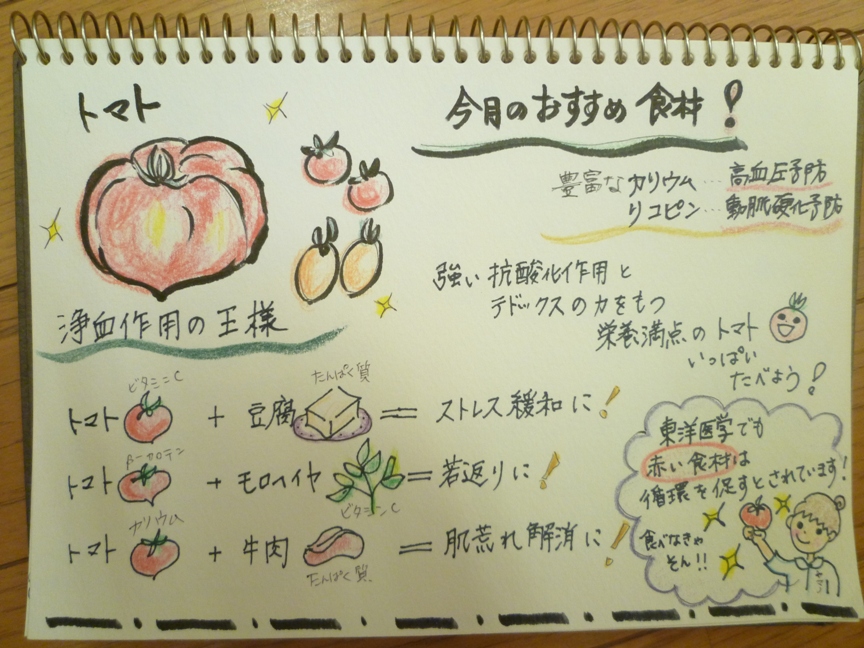 トマト
今月のおすすめ食材!
豊富なカリウム…高血圧予防
リコピン…動脈硬化予防
強い抗酸化作用と
デドックスの力をもつ
栄養満点のトマト
いっぱい
たべよう!
浄血作用の王様
ビタミンC
たんぱく質
トマト + 豆腐 = ストレス緩和に!
β-カロテン
トマト + モロヘイヤ = 若返りに!
ビタミンC
カリウム
トマト + 牛肉 = 肌荒れ解消に!
たんぱく質
東洋医学でも
赤い食材は
循環を促すとされています!
食べなきゃ
そん!!